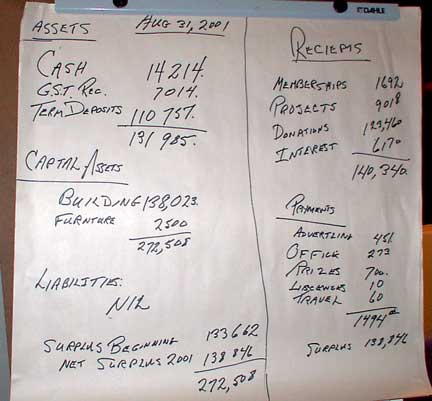 DAHLE
ASSETS AUG 31, 2001
CASH 14214.
G.S.T. REC. 7014.
TERM DEPOSITS 110 757.
131 985.
CAPITAL ASSETS
BUILDING 138,023.
FURNTURE 2500
272,508
LIABILITIES:
NIL
SURPLUS BEGINNING 133662
NET SURPLUS 2001 138 846
272,508
RECIEPTS
MEMBERSHIPS 1692
PROJECTS 9018
DONATIONS 123,460
INTEREST 6170
140,340.
PAYMENTS
ADVERTLING 451.
OFFICE 273
PRIZES 700.
LISCENCES 10
TRAVEL 60
1494
SURPLUS 138,846